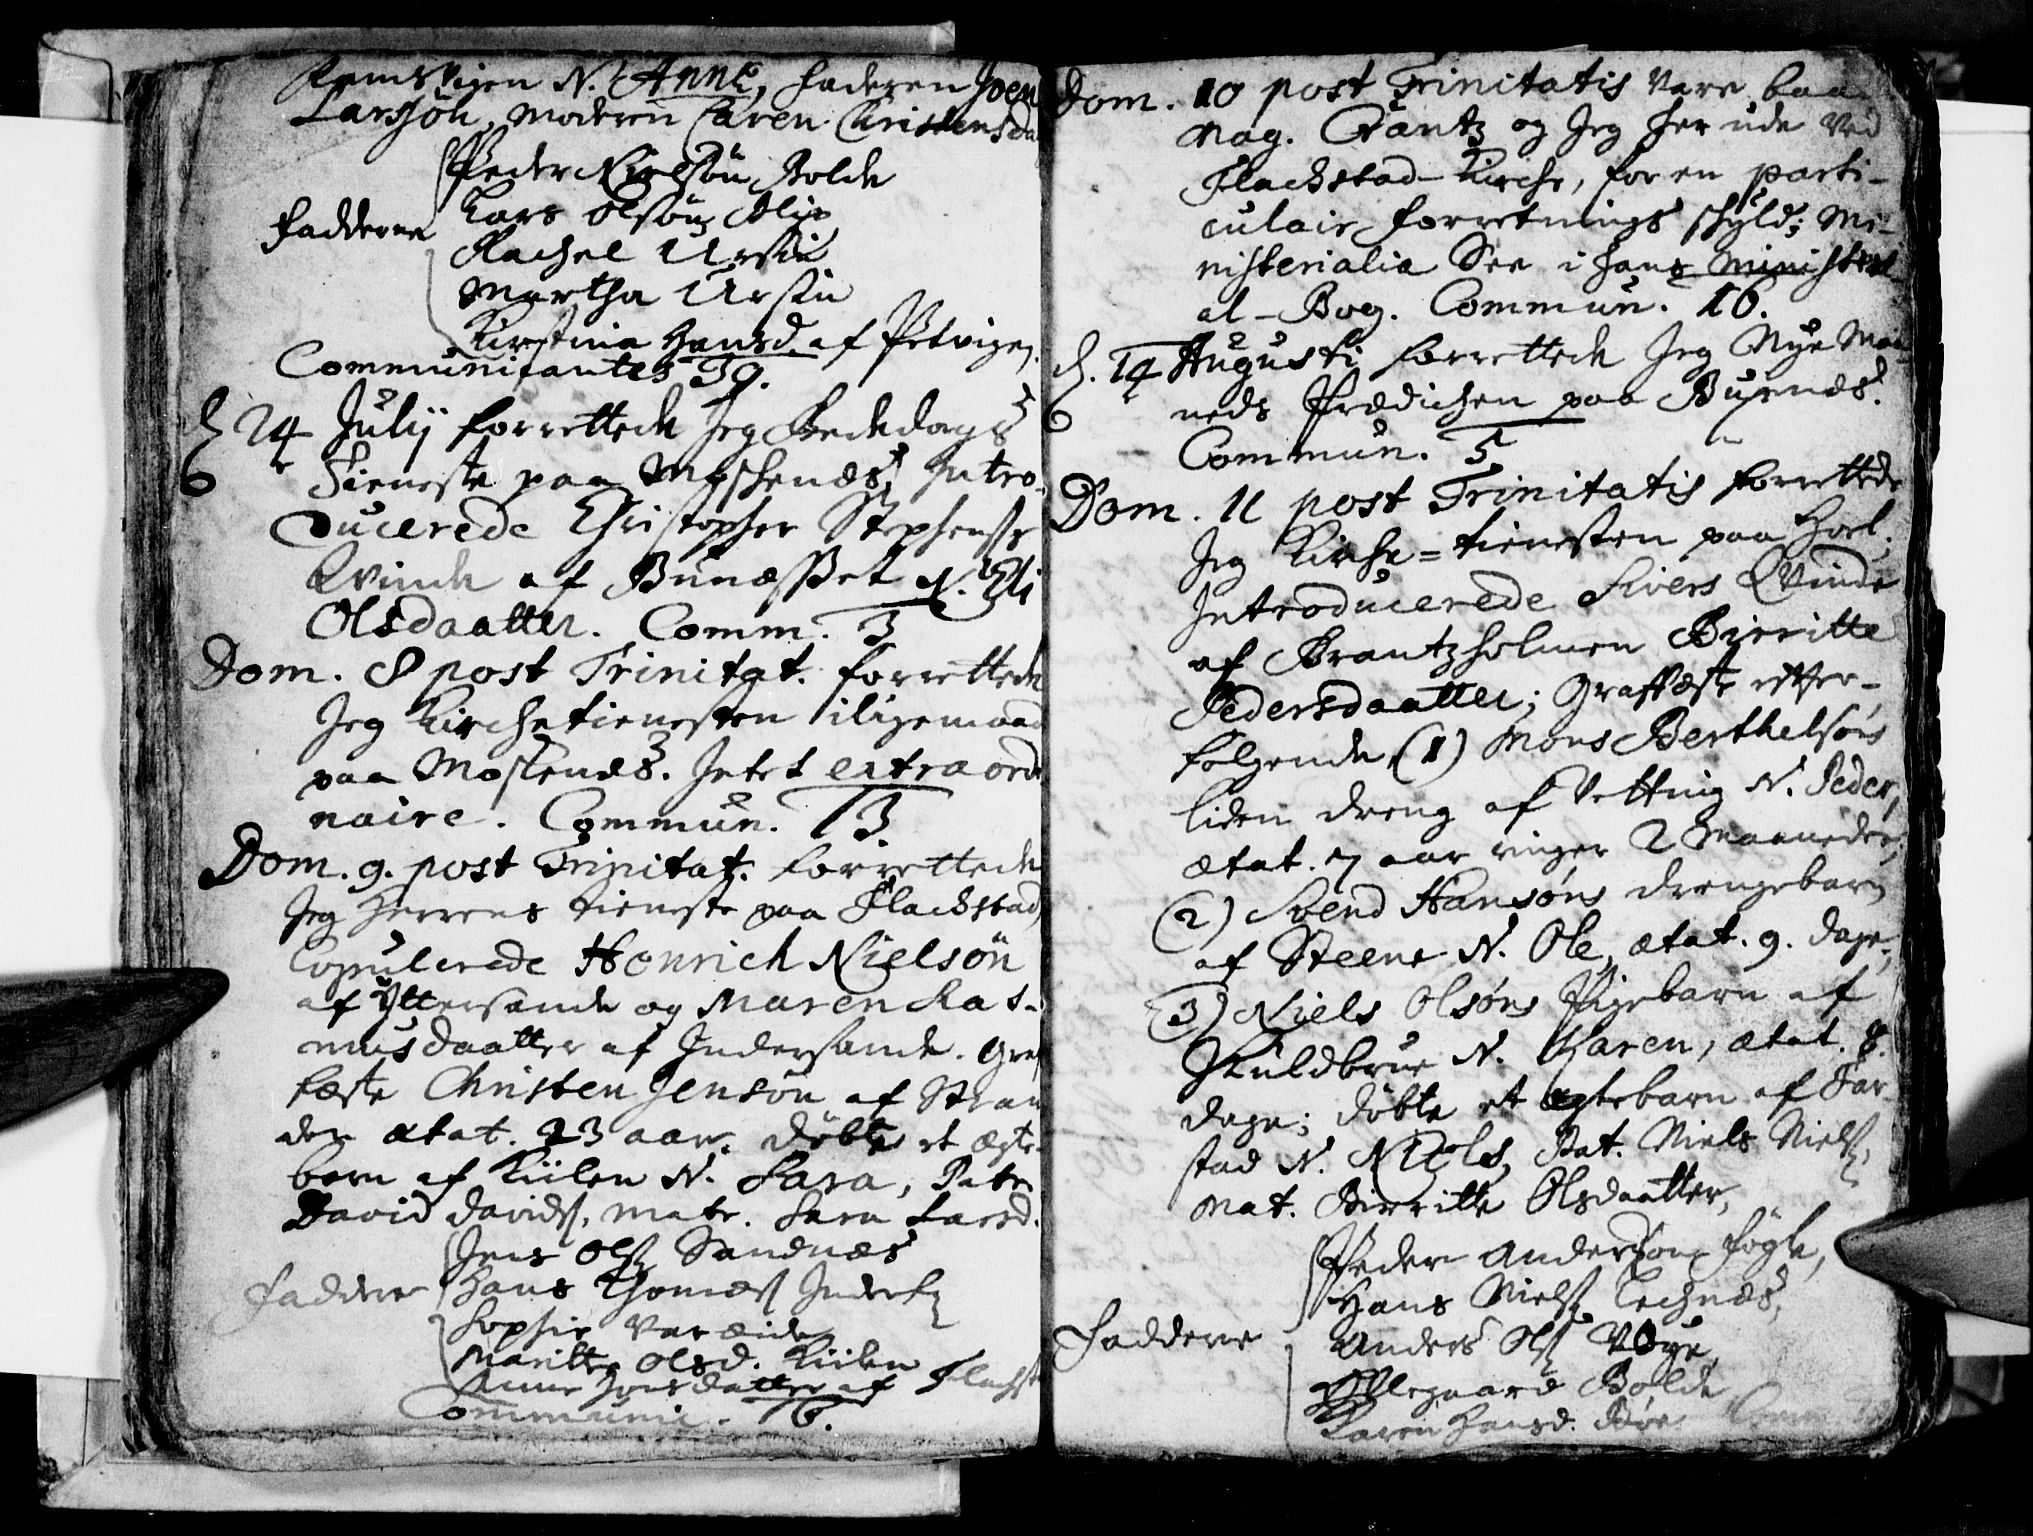 Ramsvigen N. Anne, Faderen Joen
Larssøn, Moderen Caren Christensda
Peder Nielsøn Bolde
Fadderne Lars Olsøn
Rachel Ursin
Martha Ursin
Kirstina Hansd. af
Communicantes 39.
d. 24 Julij forrettede Jeg Bededags
6 Tieneste paa Moschenæs, Intro-
ducerede Christopher Stephens
Qvinde af Bunæsset N. Eli
Olsdaatter. Comm. 3
Dom. 8 post Trinitat. forrettede
Jeg Kirchetienesten iligemaad
paa Mostenæs. Intet extraordi
naire. Commun. 13
Dom. 9. post Trinitat. forrettede
Jeg Herrens tieneste paa Flachstad,
Copulerede Henrich Nielsøn
af Yttersande og Maren Ras-
musdaatter af Indersande. Graf
fæste Christen Jensøn af Stran
den ætat. 23 aar. døbte et ægte
barn af Kiilen N. Sara, Pater
David Davids. mater. Sara Larsd.
Jens Ols. Sandnæs
Faddere Hans Thomæs.
Sophie
Maritte Olsd. Kiilen
Anne Hansdatter af Flachst
Communic. 16.
Dom. 10 post Trinitatis vare baa
Mag. Crantz og Jeg her ude ved
Flachstad Kirche, for en parti-
culair forretnings schyld; Mi-
nisterialia See i hans Ministeri
al-Bog. Commun. 16.
d. 14 Augusti forrettede Jeg Nye Maa
6 neds Prædichen paa Buxnæs.
Commun. 5
Dom. 11 post Trinitatis forrettede
Jeg Kirche=tienesten paa Hoel;
Introducerede Sivers Qvinde
af Brantzholmen Birritte
Pedersdaatter; Graffæste efter-
følgende, (1) Mons Berthelsøns
liden dreng af Vetting N. Peder,
ætat. 7 aar ringer 2 Maaneder;
(2) Svend Hansøns drengebarn
af Steene N. Ole, ætat. 9. dage,
(3) Niels Olsøns Pigebarn af
Skuldbrue N. Karen, ætat. 8.
dage; døbte et ægtebarn af Far
stad N. Niels, Pat. Niels Niels.
Mat. Birritte Olsdaatter,
Peder Andersøn Fögle,
Hans Niels. Lechnæs,
Faddere Anders Ols. Voye,
Bolde
Karen Hansd. Böe Comm.